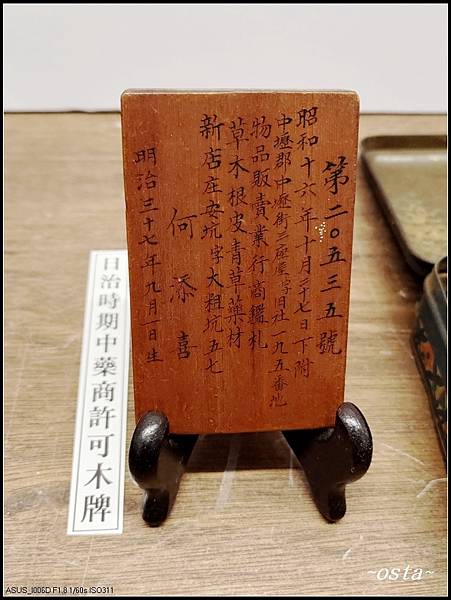 第二〇五三五號
昭和十六年十月三十七日下附
中壢郡中壢街三座屋字旧社一九五番地
物品販賣業行商鑑札
草木根皮青草藥材
新店庄安坑字大粗坑五七
何添喜
明治三十七年九月一日生
日治時期中藥商許可木牌
~osta~
ASUS_I006D F1.8 1/60s ISO311